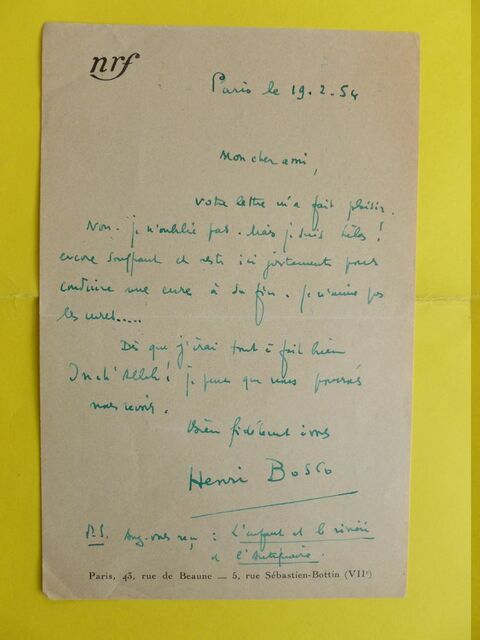 nrf
Paris le 19.2.54
Mon cher ami,
Votre lettre m'a fait plaisir.
Non. je n'oublie pas. Mais je suis hélas !
encore souffrant et reste ici justement pour
conduire une cure à sa fin. Je n'aime pas
les cures.....
Dès que j'irai tout à fait bien
Inch'Allah ! je pense que nous pourrons
nous revoir.
Bien fidèlement à vous
Henri Bosco
P.S. Avez-vous reçu : L'enfant et la rivière
et l'Antiquaire.
Paris, 43, rue de Beaune — 5, rue Sébastien-Bottin (VIIe)